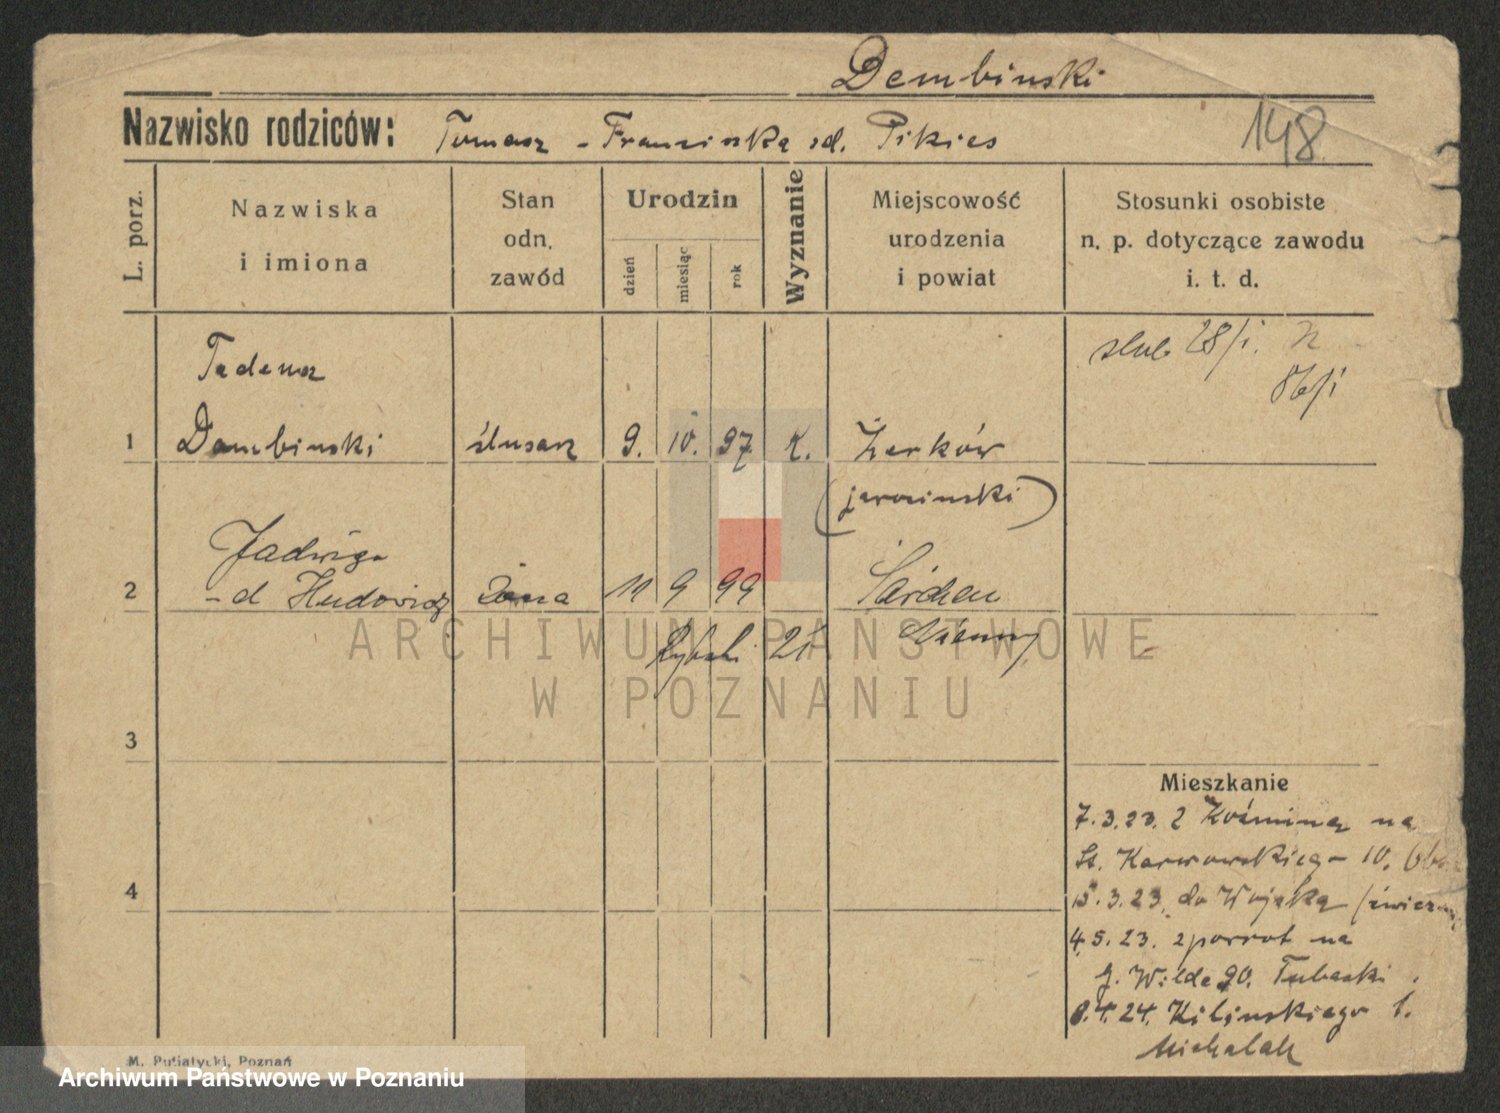 Dembinski
Nazwisko rodziców: Tomasz - Franciszka zd. Pikies
148
L. porz.
Nazwiska
i imiona
Stan
odn.
zawód
Urodzin
dzień
miesiąc
rok
Wyznanie
Miejscowość
urodzenia
i powiat
Stosunki osobiste
n. p. dotyczące zawodu
i. t. d.
Tadeusz
ślub 28/1.
1 Dembinski ślusarz 9. 10. 97 K. Żerków
(jarocinski)
Jadwiga
2 żona 11 9 99
ARCHIWUM PAŃSTWOWE
W POZNANIU
3
Mieszkanie
7.3.23. z Koźmina na
Karwowskiego 10.
4
15.3.23. do Wojska
4.5.23. zpowrot na
g. Wilda 90. Tubacki
8.4.24. Kilinskiego 1.
Michalak
M. Putiatycki, Poznań
Archiwum Państwowe w Poznaniu